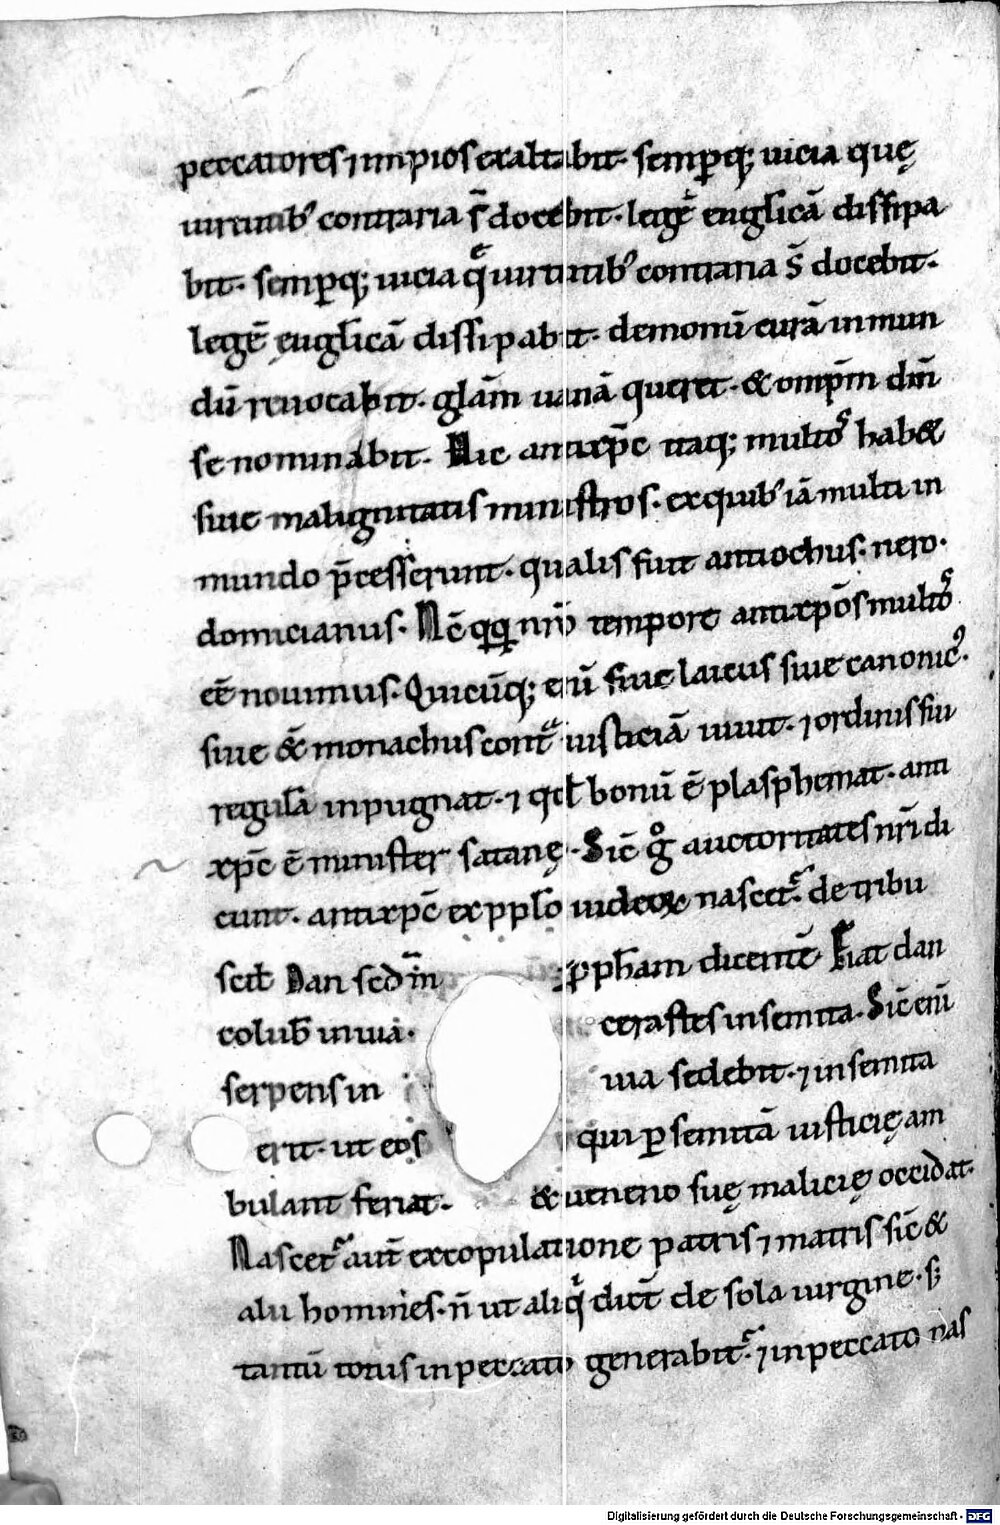 peccatores ⁊ impios exaltabit. semꝑq; uicia quę
uirtutib᾽ contraria s̄ docebit. legē euglicā dissipa
bit. semꝑq; uicia q̄ uirtutib᾽ contraria s̄ docebit.
legē euglicā dissipabit. demonū curā in mun
dū reuocabit. glām uanā queret. & omp̄m dm̄
se nominabit. Hic antixp̄c itaq; multos hab&
sue malignitatis ministros. ex quib᾽ iā multi in
mundo p̄cesserunt. qualis fuit antiochus. nero.
domicianus. Nc̄ qͦq; nr̄o tempore antixpōs multos
eē nouimus. Quicūq; enī siue laicus siue canonicꝰ.
siue & monachus contͣ iusticiā uiuit. ⁊ ordinis sui
regulā inpugnat. ⁊ qd̄ bonū ē plasphemat. anti
xp̄c ē minister satanę. Sic̄ gͦ auctoritates nr̄i di
cunt. antixp̄c ex pplo iudeoꝝ nascetᷣ. de tribu
scil Dan scd̄m ꝓpham dicentē Fiat dan
colub̄ in uia. cerastes in semita. Sic̄ enī
serpens in uia sedebit. ⁊ in semita
erit. ut eos qui ꝑ semitā iusticię am
bulant feriat. & ueneno suę malicię occidat.
Nascetᷣ aut̄ ex copulatione patris ⁊ matris sic̄ &
alii homines. n̄ ut aliq̄ dic̄t de sola uirgine. s;
tantū totus in peccato generabitᷣ. ⁊ in peccato nas
Digitalisierung gefördert durch die Deutsche Forschungsgemeinschaft - DFG